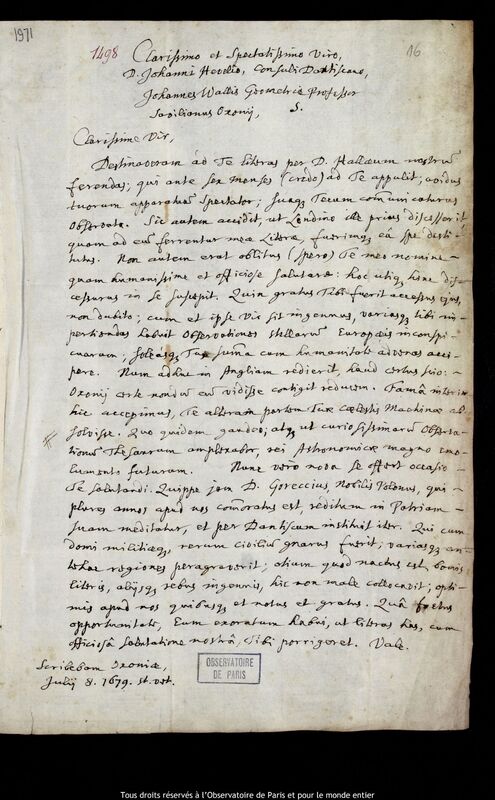 1971
1498
16
Clarissimo et Spectatissimo Viro,
D. Johanni Hevelio, Consuli Dantiscano,
Johannes Wallis Geometriæ Professor
Savilianus Oxonij, S.
Clarissime Vir,
Destinaveram ad Te literas per D. Hallæum nostrũ
ferendas; qui ante sex menses (credo) ad Te appulit, avidus
tuorum apparatuũ spectator; suasqȝ Tecum com̃unicaturus
Observata. Sic autem accidit, ut Londino ille prius discesserit
quam ad eũ ferrentur meæ Literæ, fuerimqȝ eâ spe desti-
tutus. Non autem erat oblitus (spero) Te meo nomine
quam humanissime et officiose salutare: hoc utiqȝ hinc dis-
cessurus in se suscepit. Quin gratus Tibi fuerit accessus ejus,
non dubito; cum et ipse Vir sit ingenuus, variasqȝ tibi im-
pertiendas habuit Observationes stellarũ Europæis inconspi-
cuarum; soleasqȝ Tu sum̃a cum humanitate advenas acci-
pere. Num adhuc in Angliam redierit, haud certus scio:
Oxonij certe nondũ eũ vidisse contigit reducem. Famâ interim
hic accepimus, Te alteram partem Tuæ cælestis Machinæ ab-
solvisse. Quo quidem gaudeo; atqȝ ut curiosissimarũ Observa-
tionũ Thesaurum amplexabor, rei Astronomicæ magno emo-
lumento futurum. Nunc vero nova se offert occasio
Te salutandi. Quippe jam D. Goreccius, Nobilis Polonus, qui
plures annos apud nos com̃oratus est, reditum in Patriam
suam meditatur, et per Dantiscum instituit iter. Qui cum
domi militiæqȝ, rerum civiliũ gnarus fuerit; variasqȝ
regiones peragraverit; otium quod nactus est, bonis
literis, alijsqȝ rebus ingenuis, hic non male collocavit; opti-
mis apud nos quibusqȝ et notus et gratus. Quâ
opportunitate, Eum exoratum habui, ut literas has, cum
officiosâ salutatione nostrâ, Tibi porrigeret. Vale.
Scribebam Oxoniæ,
Julij 8. 1679. st. vet.
OBSERVATOIRE
DE PARIS
Tous droits réservés à l'Observatoire de Paris et pour le monde entier